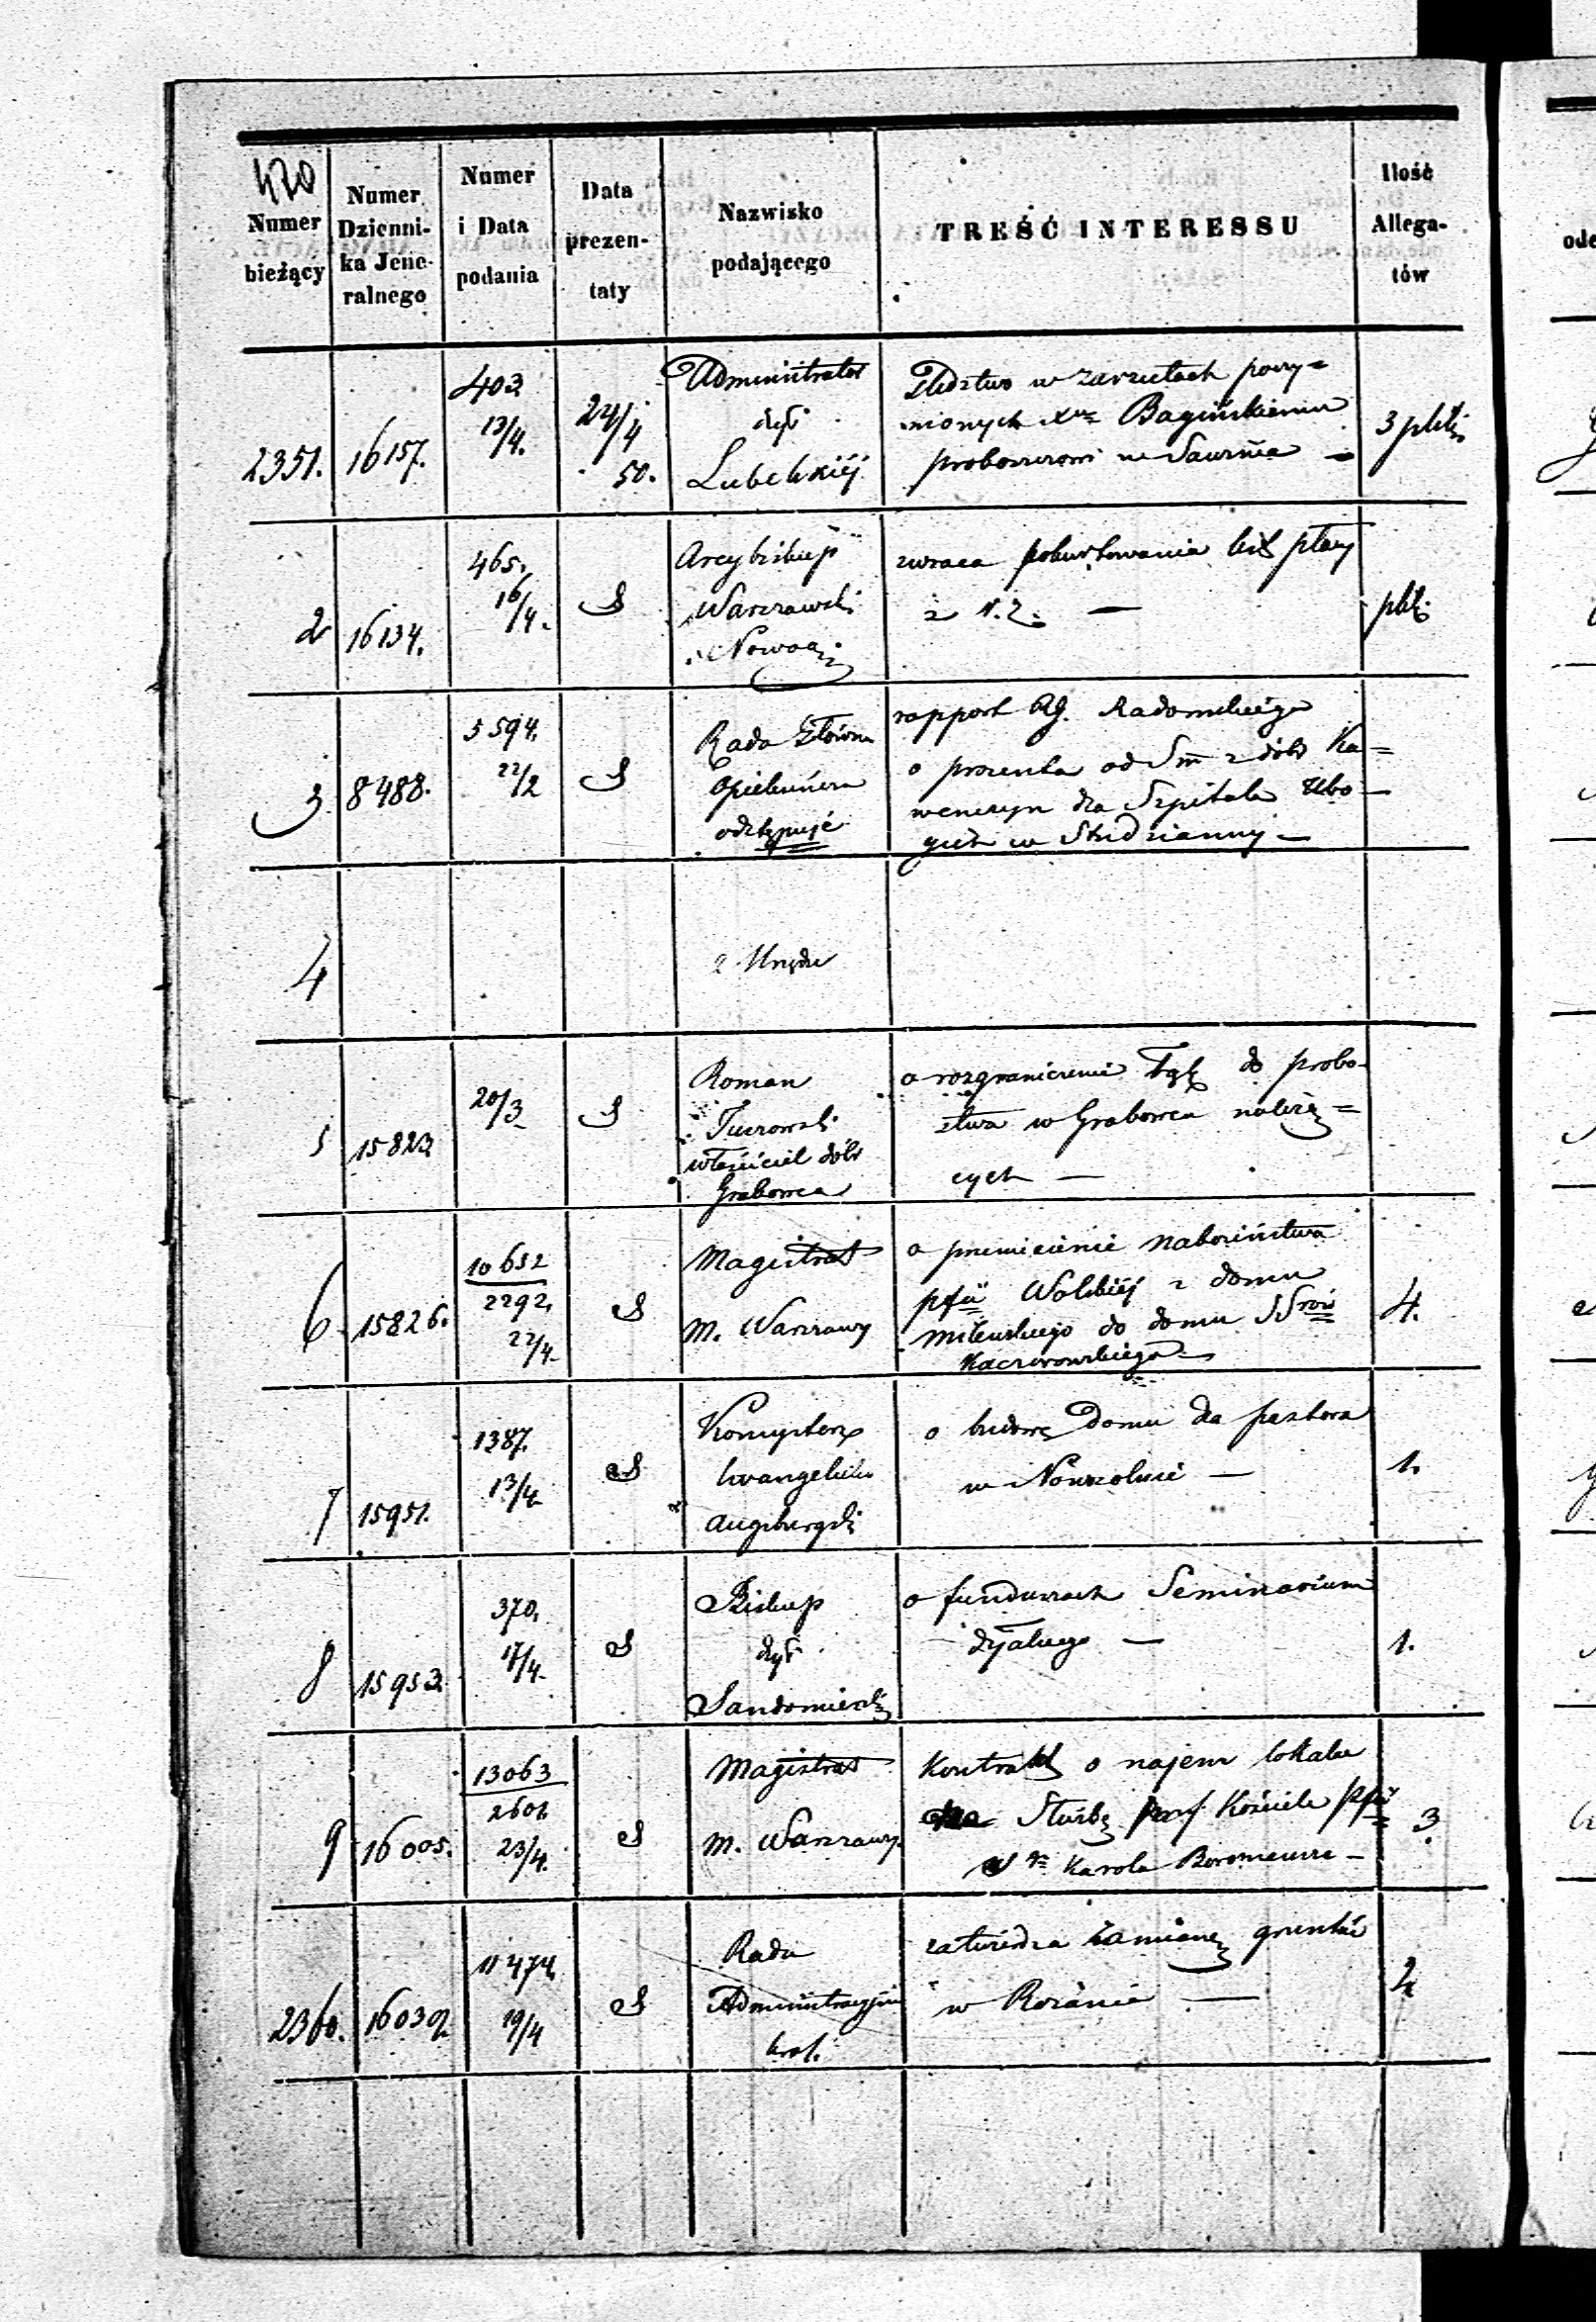 420
Numer bieżący
Numer Dzienni-
ka Jene-
ralnego
Numer
i Data
podania
Data
prezen-
taty
Nazwisko
podającego
TREŚĆ INTERESSU
Ilość
Allega-
tów
2351. 16157.
403
13/4.
24/4
50.
Administrator
dyi
Lubelskiéj
Śledztwo w zarzutach poczy=
nionych Xu Bagińskiemu
proboszczowi w
3 plik
2 16134.
465.
16/4.
S
Arcybiskup
Warszawski
Nowoa.
zwraca płacy
z N. 2. —
plik
3 8488.
5594.
22/2
S
Rada Główna
Opiekuńcza
odstępuje
rapport Rg. Radomskiego
o procenta od Sm z dóbr Ka=
wenczyn dla Szpitala Ubo-
gich w Studzianny —
4
z Urzędu
5 15823.
20/3
S
Roman
właściciel dóbr
Grabowca
o rozgraniczenie łąk do probo-
stwa w Grabowcu należą=
cych —
6 15826.
10652
2292.
22/4.
S
Magistrat
M. Warszawy
o przeniesienie nabożeństwa
pfii Wolskiéj z domu
Milewskiego do domu SSrów
Kaczorowskiego —
4.
7 15951.
1387.
13/4.
S
Konsystorz
Ewangelicko
Augsburgski
o budowę domu dla pastora
w Nowosolnie —
1.
8 15953.
370.
17/4.
S
Biskup
dyi
Sandomierski
o funduszach Seminarium
dyalnego —
1.
9 16005.
13063
2601.
23/4.
S
Magistrat
M. Warszawy.
Kontrakt o najem lokalu
dla Służby przy Kościele pfii
S go Karola Boromeusza —
3.
2360. 16039.
11474.
19/4
S
Rada
Administracyjna
Król.
zatwierdza zamianę gruntów
w Rożanie —
2